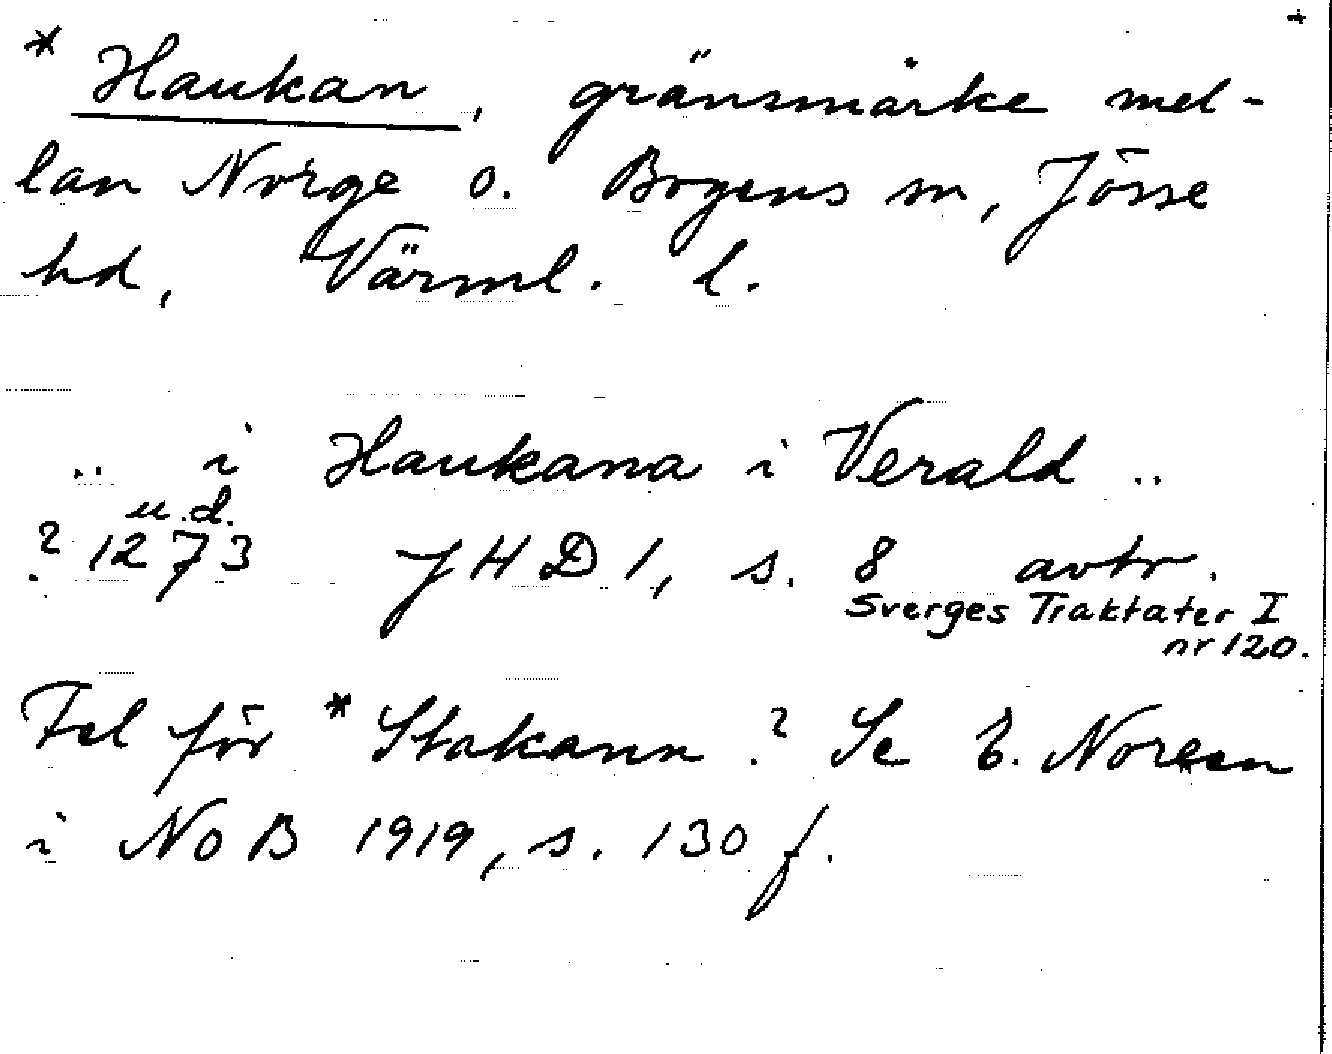 +
* Haukan, gränsmärke mel-
lan Norge o. Bogens sn, Jösse
hd, Värml. l.
.. i Haukana i Verald ..
u.d.
? 1273 JHD 1, s. 8 avtr.
Sverges Traktater I
nr 120.
Fel för *Stakann? Se E. Noreen
i NoB 1919, s. 130 f.